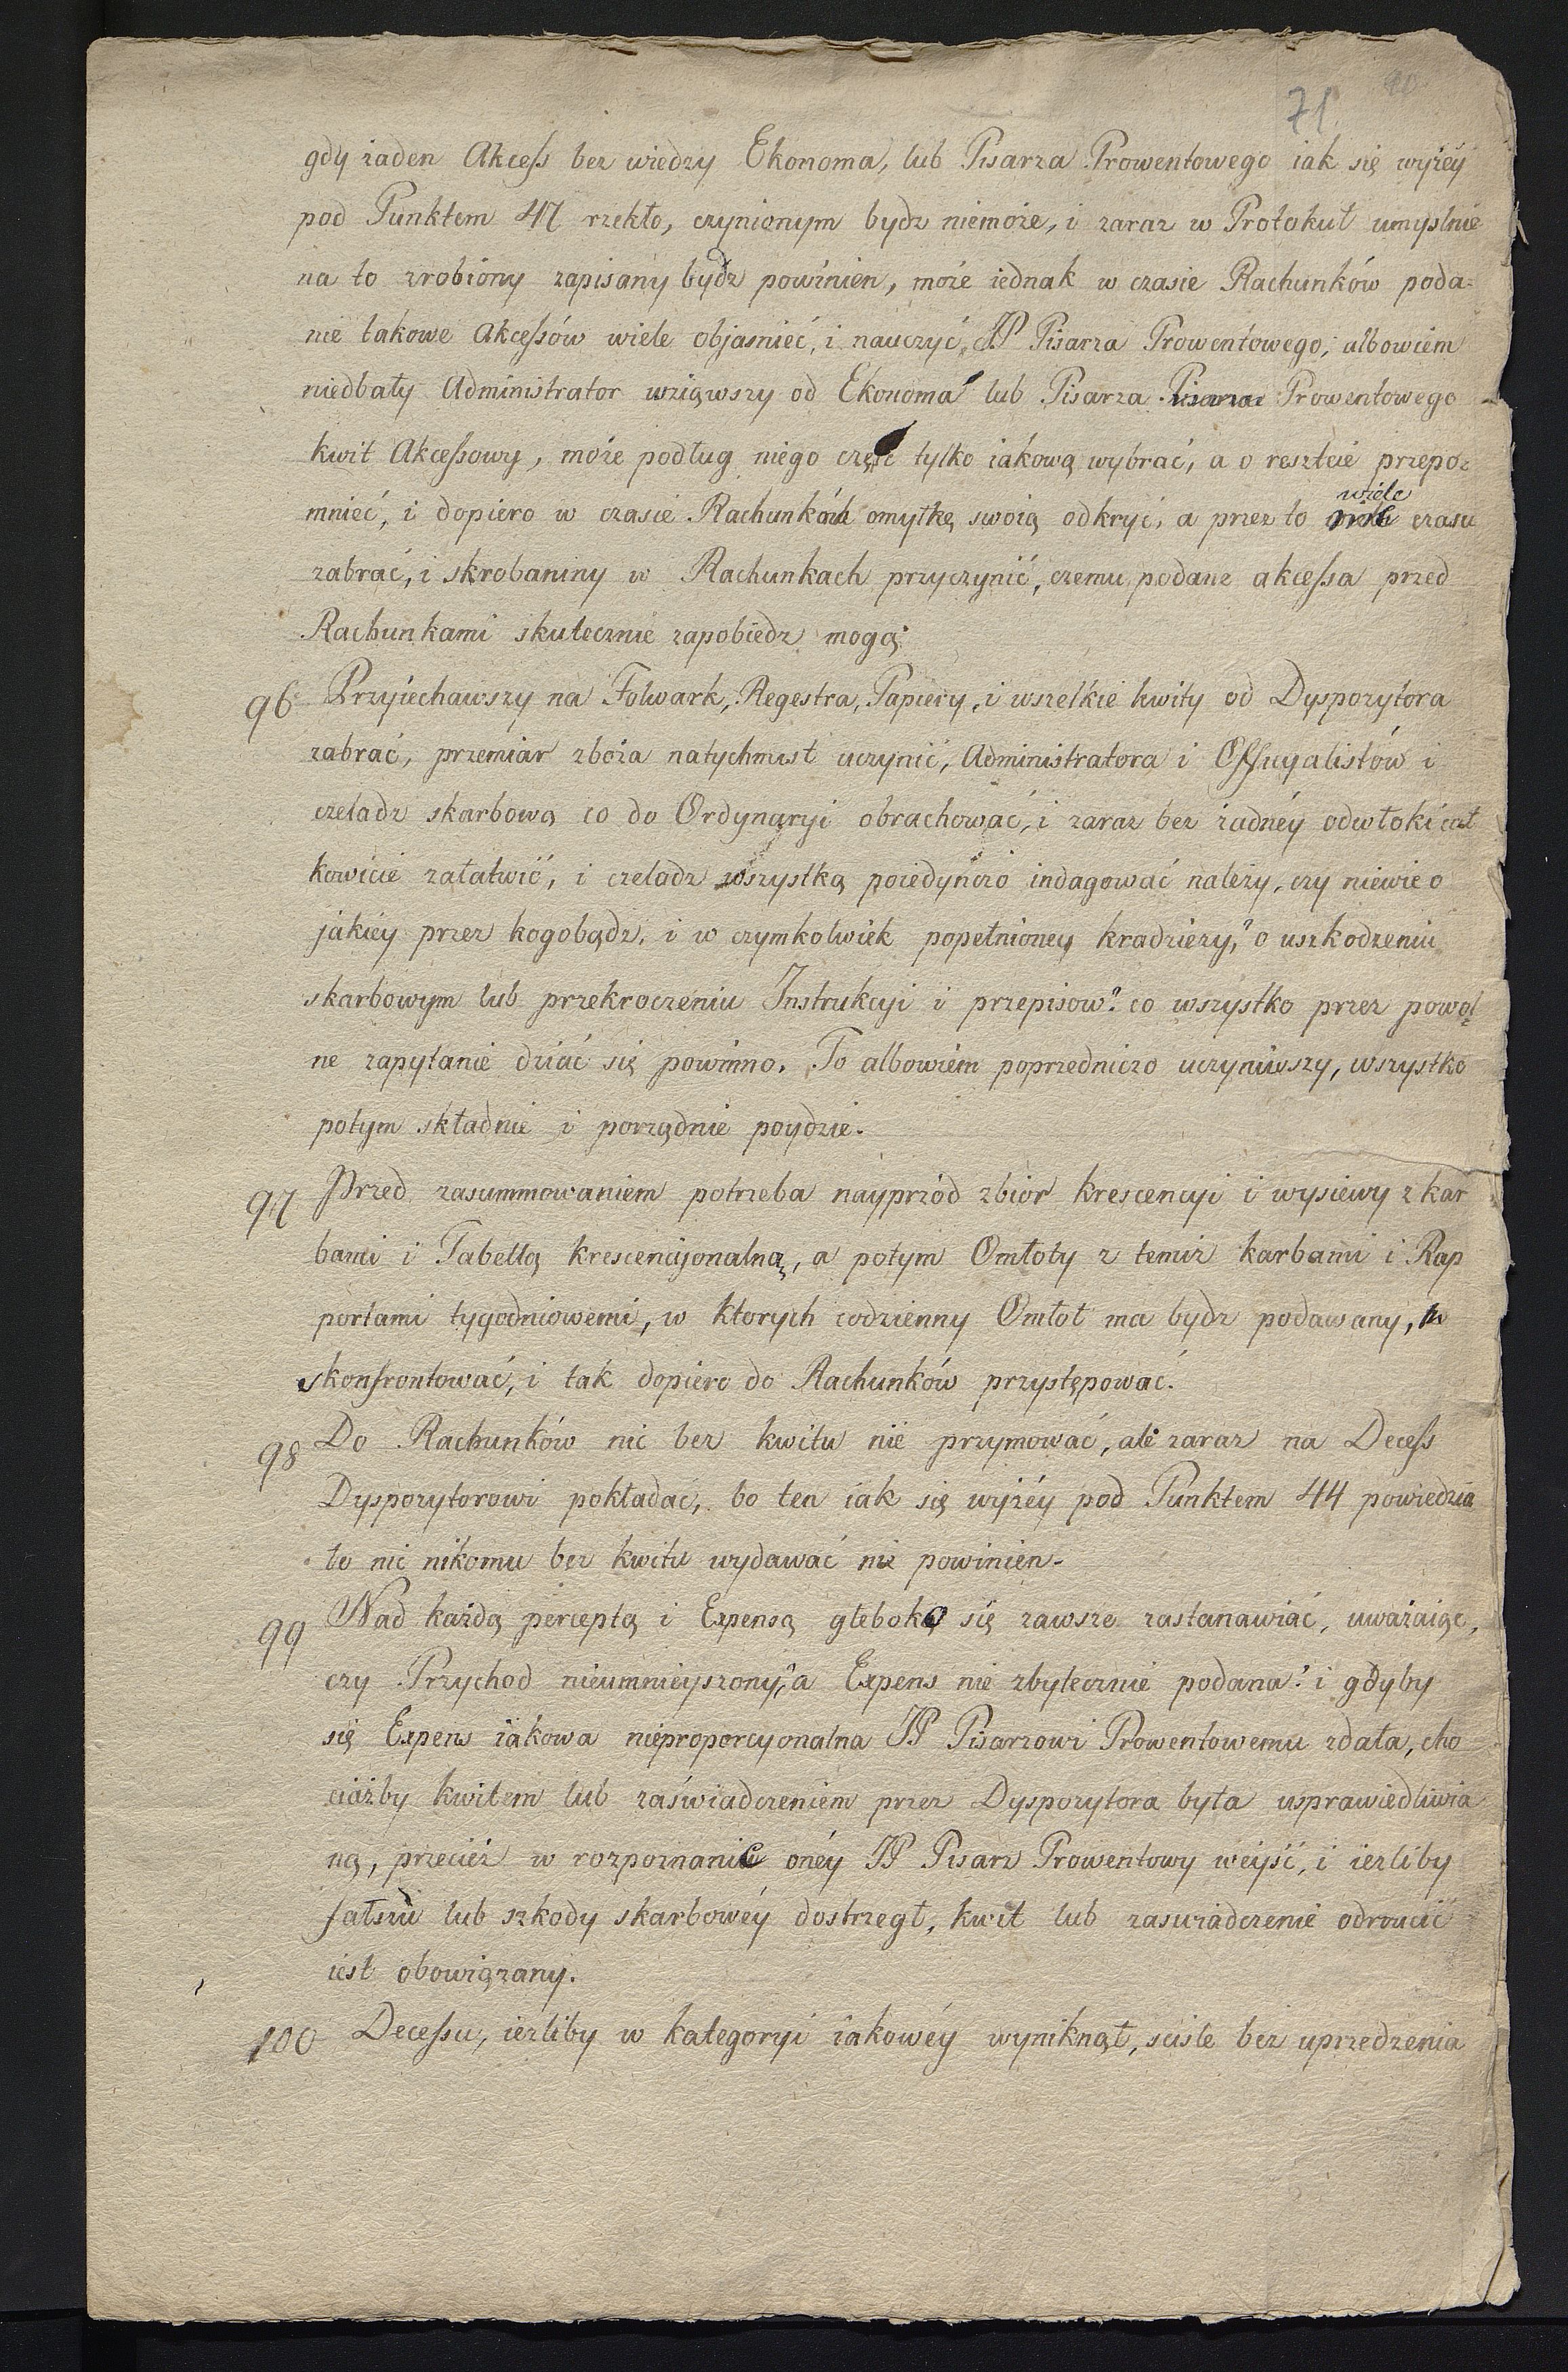 71.
gdy żaden Akcess bez wiedzy Ekonoma, lub Pisarza Prowentowego iak się wyżéy
pod Punktem 47 rzekło, czynionym bydz niemoże, i zaraz w Protokuł umyslnie
na to zrobiony zapisany bydz powinien, może iednak w czasie Rachunków poda=
nie takowe Akcessów wiele objasnieć, i nauczyć JP Pisarza Prowentowego, albowiem
niedbały Administrator wziąwszy od Ekonoma lub Pisarza Pisarza Prowentowego
kwit Akcessowy, może podług niego część tylko iakową wybrać, a o reszcie przepo=
mnieć, i dopiero w czasie Rachunków omyłkę swoią odkryć, a przez to wiele czasu
zabrać, i skrobaniny w Rachunkach przyczynić, czemu podane akcessa przed
Rachunkami skutecznie zapobiedz mogą.
96 Przyiechawszy na Folwark, Regestra, Papiery, i wszelkie kwity od Dyspozytora
zabrać, przemiar zboża natychmist uczynić, Administratora i Officyalistów i
czeladz skarbową co do Ordynaryi obrachować, i zaraz bez żadnéy odwłoki cał
kowicie załatwić, i czeladz wszystką poiedynczo indagować należy, czy niewie o
jakiéy przez kogobądz, i w czymkolwiek popełnioney kradzieży, o uszkodzeniu
skarbowym lub przekroczeniu Instrukcyi i przepisow? co wszystko przez powol
ne zapytanie dziać się powinno. To albowiem poprzedniczo uczyniwszy, wszystko
potym składnie i porządnie poydzie.
97 Przed zasummowaniem potrzeba nayprzód zbior krescencyi i wysiewy z kar
bami i Tabellą krescencyonalną, a potym Omłoty z temiż karbami i Rap
portami tygodniowemi, w ktorych codzienny Omłot ma bydz podawany,
skonfrontować, i tak dopiero do Rachunków przystępować.
98 Do Rachunków nic bez kwitu nie przymować, ale zaraz na Decess
Dyspozytorowi pokładać, bo ten iak się wyżéy pod Punktem 44 powiedzia
ło nic nikomu bez kwitu wydawać nie powinien.
99 Nad każdą perceptą i Expensą głeboko się zawsze zastanawiać, uważaiąc,
czy Przychod nieumnieyszony, a Expens nie zbytecznie podana? i gdyby
się Expens iakowa nieproporcyonalna JP Pisarzowi Prowentowemu zdała, cho
ciażby kwitem lub zaświadczeniem przez Dyspozytora była usprawiedliwia
ną, przecież w rozpoznanie onéy JP Pisarz Prowentowy weyść, i iezliby
fałszu lub szkody skarbowéy dostrzegł, kwit lub zaswiadczenie odrzucić
iest obowiązany.
100 Decessu, iezliby w kategoryi iakowéy wyniknął, scisle bez uprzedzenia